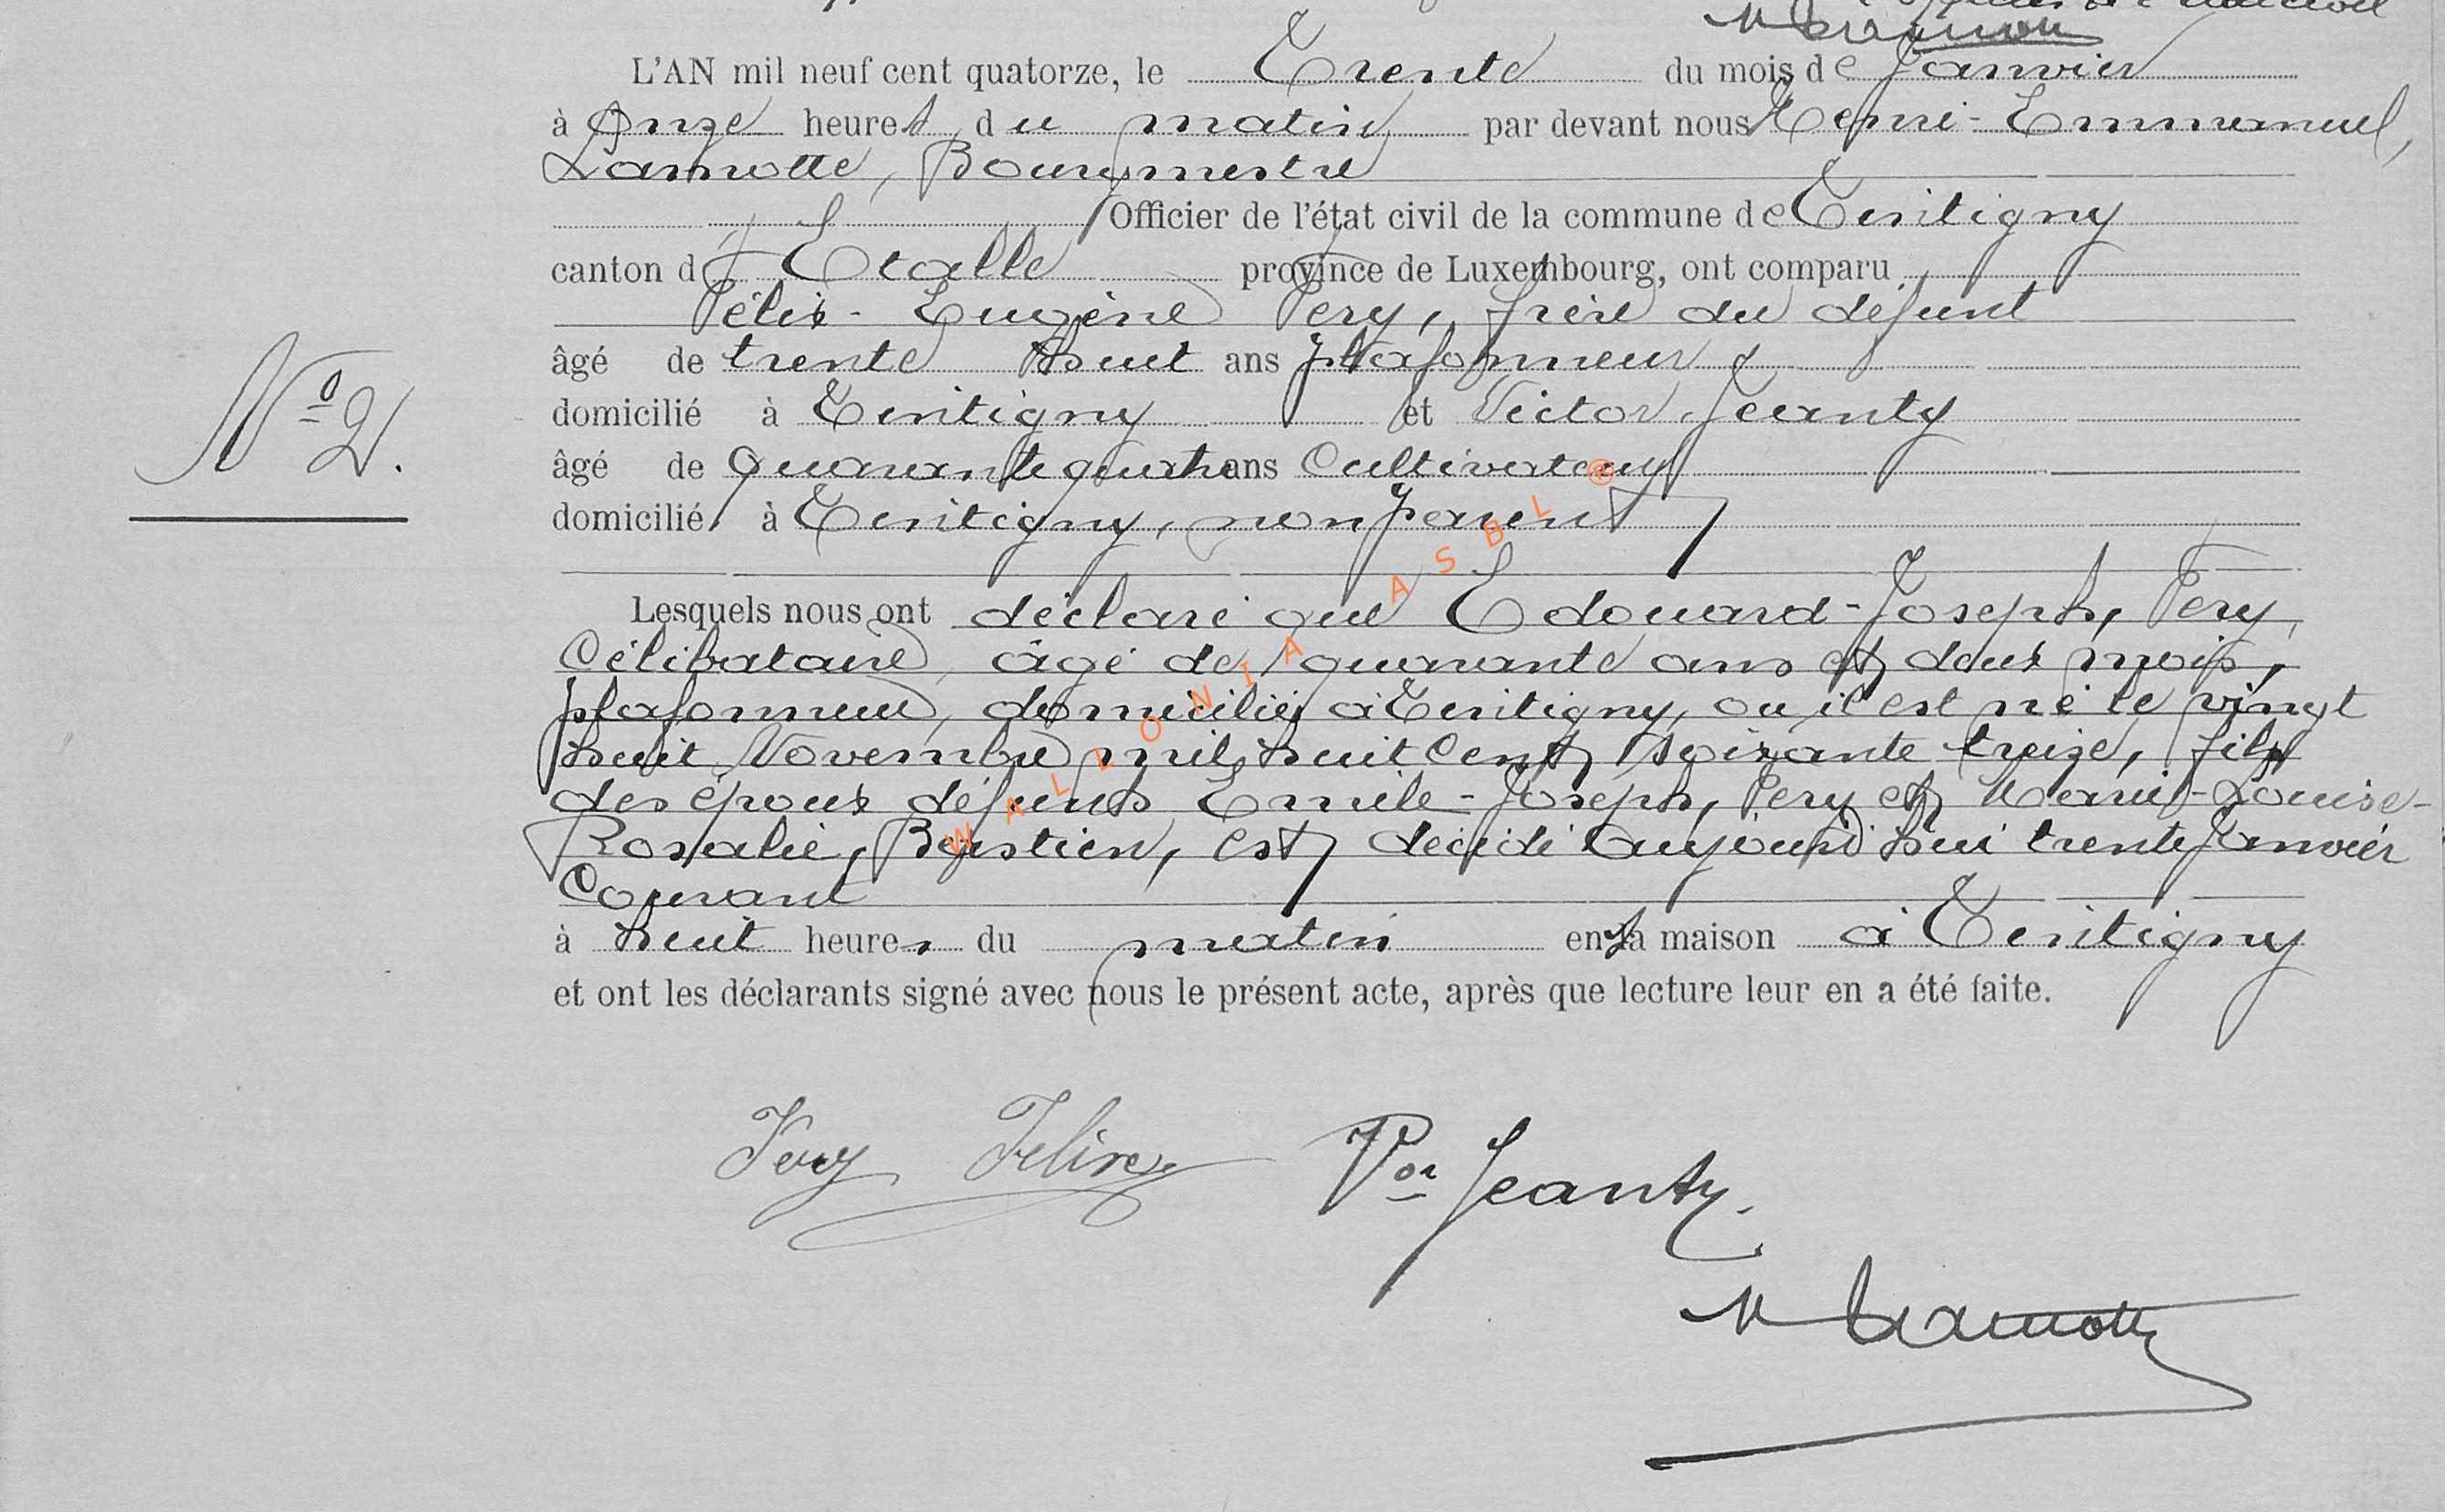 L'AN mil neuf cent quatorze, le Trente du mois de Janvier
à Onze heures du matin par devant nous Henri-Emmanuel,
Lamotte, Bourgmestre
Officier de l'état civil de la commune de Tintigny
canton d'Etalle province de Luxembourg, ont comparu
Félix-Eugène Féry, frère du défunt
âgé de trente huit ans plafonneur
domicilié à Tintigny et Victor Jeanty
âgé de quarante quatre ans Cultivateur
domicilié à Tintigny, non parent
Lesquels nous ont déclaré que Edouard-Joseph, Féry,
Célibataire, âgé de quarante ans et deux mois,
plafonneur, domicilié à Tintigny, où il est né le vingt
huit Novembre mil huit Cent soixante treize, fils
des époux défunts Emile-Joseph, Féry et Marie-Louise-
Rosalie, Bastien, est décédé aujourd'hui trente Janvier
Courant
à huit heures du matin en sa maison à Tintigny
et ont les déclarants signé avec nous le présent acte, après que lecture leur en a été faite.
N° 2.
Féry Félix
Vor Jeanty.
H Lamotte
WALLONIA ASBL ®